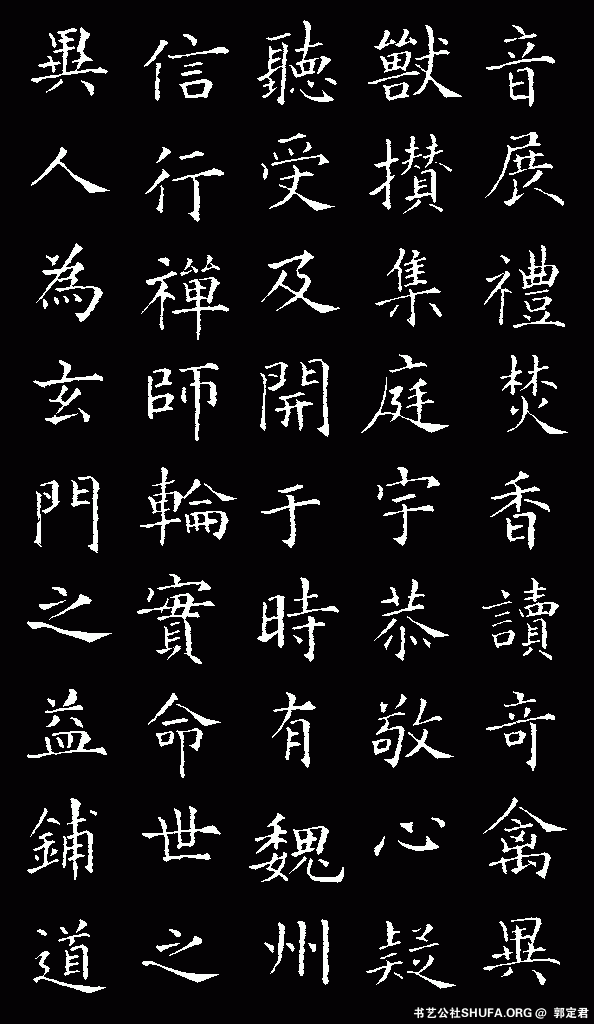 音展禮焚香讀竒禽異
獸攅集庭宇恭敬心疑
聽受及開于時有魏州
信行禪師輪實命世之
異人為玄門之益鋪道
书艺公社SHUFA.ORG @ 郭定君